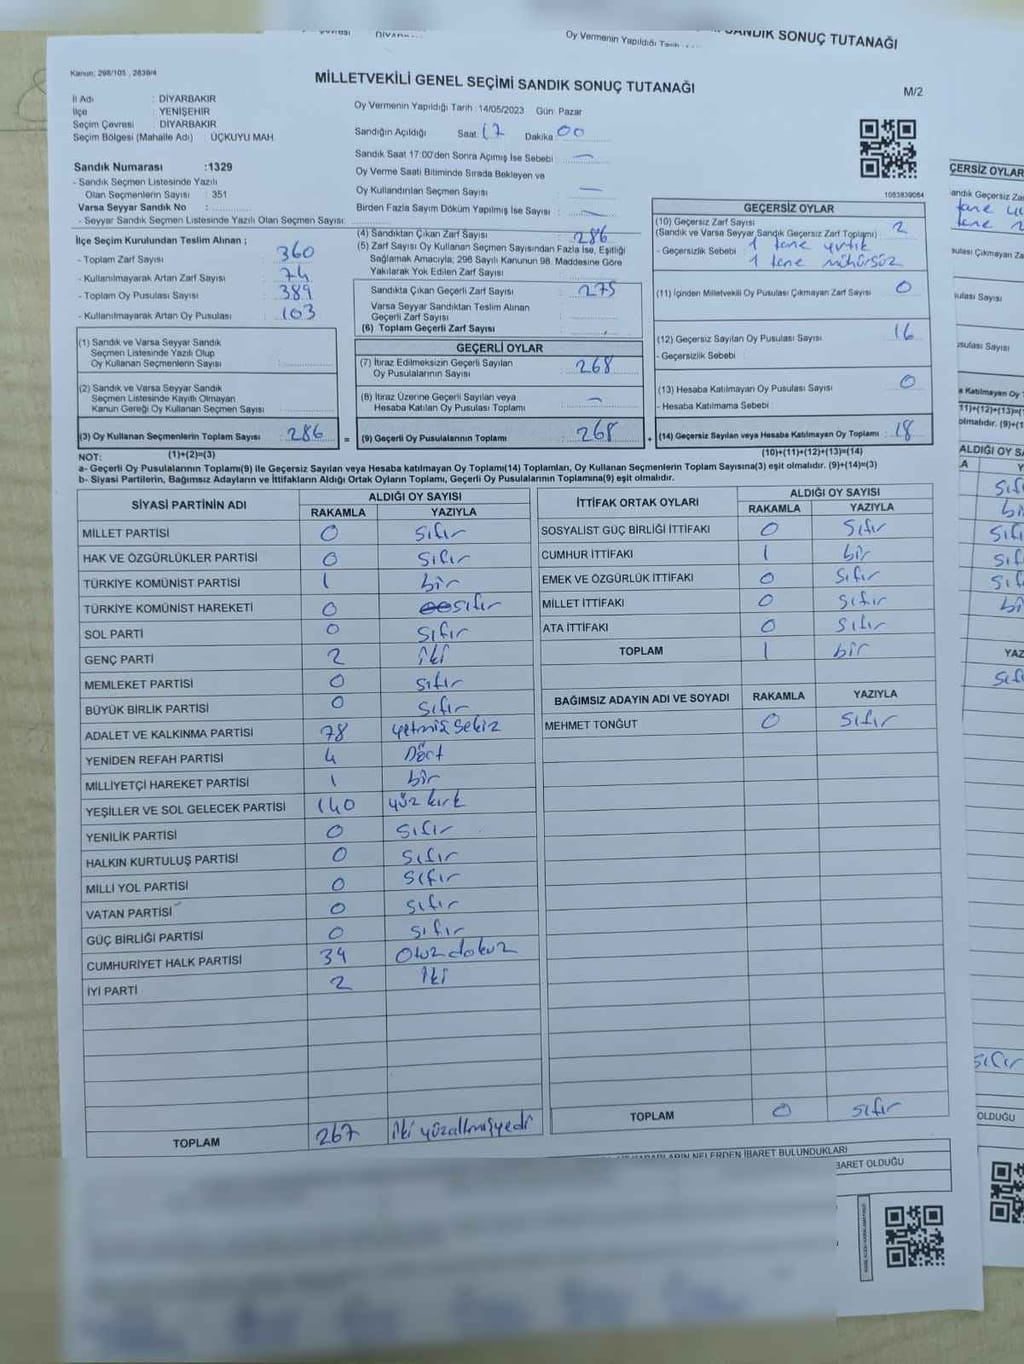 Oy Vermenin Yapıldığı Tarih
SANDIK SONUÇ TUTANAĞI
Kanun: 298/105 , 2839/4
MİLLETVEKİLİ GENEL SEÇİMİ SANDIK SONUÇ TUTANAĞI
M/2
İl Adı : DİYARBAKIR
İlçe : YENİŞEHİR
Seçim Çevresi : DİYARBAKIR
Seçim Bölgesi (Mahalle Adı) : ÜÇKUYU MAH.
Oy Vermenin Yapıldığı Tarih :14/05/2023 Gün: Pazar
Sandığın Açıldığı Saat 17 Dakika 00
Sandık Saat 17:00'den Sonra Açımış İse Sebebi : —
Oy Verme Saati Bitiminde Sırada Bekleyen ve
Oy Kullandırılan Seçmen Sayısı : —
Birden Fazla Sayım Döküm Yapılmış İse Sayısı : —
1083839084
Sandık Numarası :1329
- Sandık Seçmen Listesinde Yazılı
Olan Seçmenlerin Sayısı : 351
Varsa Seyyar Sandık No :
- Seyyar Sandık Seçmen Listesinde Yazılı Olan Seçmen Sayısı:
İlçe Seçim Kurulundan Teslim Alınan ;
- Toplam Zarf Sayısı : 360
- Kullanılmayarak Artan Zarf Sayısı : 74
- Toplam Oy Pusulası Sayısı : 389
- Kullanılmayarak Artan Oy Pusulası : 103
(1) Sandık ve Varsa Seyyar Sandık
Seçmen Listesinde Yazılı Olup
Oy Kullanan Seçmenlerin Sayısı :
(2) Sandık ve Varsa Seyyar Sandık
Seçmen Listesinde Kayıtlı Olmayan
Kanun Gereği Oy Kullanan Seçmen Sayısı :
(3) Oy Kullanan Seçmenlerin Toplam Sayısı : 286 =
(4) Sandıktan Çıkan Zarf Sayısı : 286
(5) Zarf Sayısı Oy Kullanan Seçmen Sayısından Fazla İse, Eşitliği
Sağlamak Amacıyla, 298 Sayılı Kanunun 98. Maddesine Göre
Yakılarak Yok Edilen Zarf Sayısı :
Sandıkta Çıkan Geçerli Zarf Sayısı : 275
Varsa Seyyar Sandıktan Teslim Alınan
Geçerli Zarf Sayısı :
(6) Toplam Geçerli Zarf Sayısı :
GEÇERLİ OYLAR
(7) İtiraz Edilmeksizin Geçerli Sayılan
Oy Pusulalarının Sayısı : 268
(8) İtiraz Üzerine Geçerli Sayılan veya
Hesaba Katılan Oy Pusulası Toplamı : —
(9) Geçerli Oy Pusulalarının Toplamı : 268 +
GEÇERSİZ OYLAR
(10) Geçersiz Zarf Sayısı
(Sandık ve Varsa Seyyar Sandık Geçersiz Zarf Toplamı) : 2
- Geçersizlik Sebebi : 1 tane yırtık
1 tane mühürsüz
(11) İçinden Milletvekili Oy Pusulası Çıkmayan Zarf Sayısı : 0
(12) Geçersiz Sayılan Oy Pusulası Sayısı : 16
- Geçersizlik Sebebi :
(13) Hesaba Katılmayan Oy Pusulası Sayısı : 0
- Hesaba Katılmama Sebebi :
(14) Geçersiz Sayılan veya Hesaba Katılmayan Oy Toplamı : 18
NOT: (1)+(2)=(3)
(10)+(11)+(12)+(13)=(14)
a- Geçerli Oy Pusulalarının Toplamı(9) ile Geçersiz Sayılan veya Hesaba katılmayan Oy Toplamı(14) Toplamları, Oy Kullanan Seçmenlerin Toplam Sayısına(3) eşit olmalıdır. (9)+(14)=(3)
b- Siyasi Partilerin, Bağımsız Adayların ve İttifakların Aldığı Ortak Oyların Toplamı, Geçerli Oy Pusulalarının Toplamına(9) eşit olmalıdır.
SİYASİ PARTİNİN ADI ALDIĞI OY SAYISI
RAKAMLA YAZIYLA
MİLLET PARTİSİ 0 Sıfır
HAK VE ÖZGÜRLÜKLER PARTİSİ 0 Sıfır
TÜRKİYE KOMÜNİST PARTİSİ 1 bir
TÜRKİYE KOMÜNİST HAREKETİ 0 sıfır
SOL PARTİ 0 Sıfır
GENÇ PARTİ 2 iki
MEMLEKET PARTİSİ 0 Sıfır
BÜYÜK BİRLİK PARTİSİ 0 Sıfır
ADALET VE KALKINMA PARTİSİ 78 yetmiş sekiz
YENİDEN REFAH PARTİSİ 4 Dört
MİLLİYETÇİ HAREKET PARTİSİ 1 bir
YEŞİLLER VE SOL GELECEK PARTİSİ 140 yüz kırk
YENİLİK PARTİSİ 0 Sıfır
HALKIN KURTULUŞ PARTİSİ 0 Sıfır
MİLLİ YOL PARTİSİ 0 Sıfır
VATAN PARTİSİ 0 Sıfır
GÜÇ BİRLİĞİ PARTİSİ 0 Sıfır
CUMHURİYET HALK PARTİSİ 39 Otuz dokuz
İYİ PARTİ 2 İki
TOPLAM 267 İki yüzaltmışyedi
İTTİFAK ORTAK OYLARI ALDIĞI OY SAYISI
RAKAMLA YAZIYLA
SOSYALIST GÜÇ BİRLİĞİ İTTİFAKI 0 Sıfır
CUMHUR İTTİFAKI 1 bir
EMEK VE ÖZGÜRLÜK İTTİFAKI 0 Sıfır
MİLLET İTTİFAKI 0 Sıfır
ATA İTTİFAKI 0 Sıfır
TOPLAM 1 bir
BAĞIMSIZ ADAYIN ADI VE SOYADI RAKAMLA YAZIYLA
MEHMET TONĞUT 0 Sıfır
TOPLAM 0 Sıfır
NELERDEN İBARET BULUNDUKLARI
BARET OLDUĞU